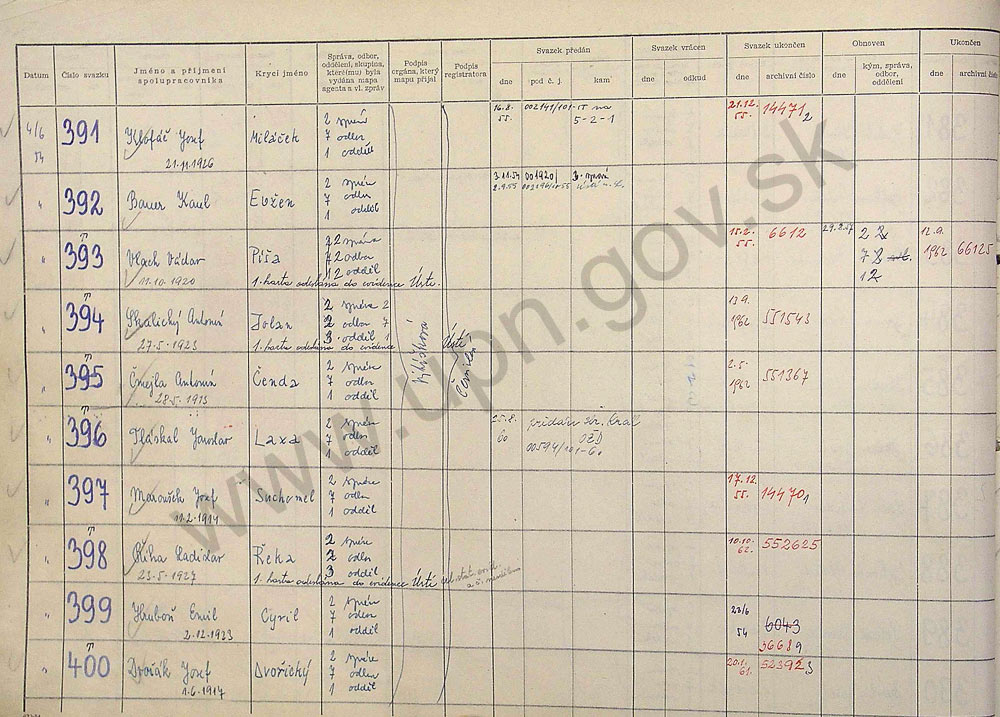 Datum Číslo svazku Jméno a příjmení spolupracovníka Krycí jméno Správa, odbor, oddělení, skupina, které(mu) byla vydána mapa agenta a vl. zpráv Podpis orgána, který mapu přijal Podpis registratora Svazek předán Svazek vrácen Svazek ukončen Obnoven Ukončen
dne pod č. j. kam dne odkud dne archivní číslo dne kým, správa, odbor, oddělení dne archivní čís
4/6 54 391 Klofáč Josef 21.11.1926 Miláček 2 správa 7 odbor 1 odděl 16.8. 55. 002141/101-55 na 5-2-1 21.12. 55. 14471 2
" 392 Bauer Karel Evžen 2 správa 7 odbor 1 odděl 3.11.54 001920/ 3. správa
2.9.55
" 393 Vlach Václav 11.10.1920 Píša 2 správa odbor odděl 15.2. 55. 6612 2 12 12.9. 1962 66125
1. karta odeslána do evidence Ústí.
" 394 Skalický Antonín 27.5.1923 Jolan 2 správa 2 2 odbor 7 3. odděl 1 13.9. 1962 551543
1. karta odeslána do evidence Ústí
" 395 Čmejla Antonín 28.5.1913 Čenda 2 správa 7 odbor 1 odděl 2.5. 1962 551367
" 396 Tláskal Jaroslav Laxa 2 správa 7 odbor 1 odděl 25.8. 60 předáno kr. Král
OŽD
00594/101-60
" 397 Maroušek Josef 11.2.1914 Suchomel 2 správa 7 odbor 1 odděl 17.12. 55. 14470 1
" 398 Říha Ladislav 23.5.1927 Řeka 2 správa 2 odbor 3 odděl 10.10. 62. 552625
1. karta odeslána do evidence Ústí
" 399 Hruboň Emil 2.12.1923 Cyril 2 správa 7 odbor 1 odděl 23/6 54 6043
36689
" 400 Dvořák Josef 1.6.1917 Dvořický 2 správa 7 odbor 1 odděl 20.1. 61. 52392 3
www.upn.gov.sk